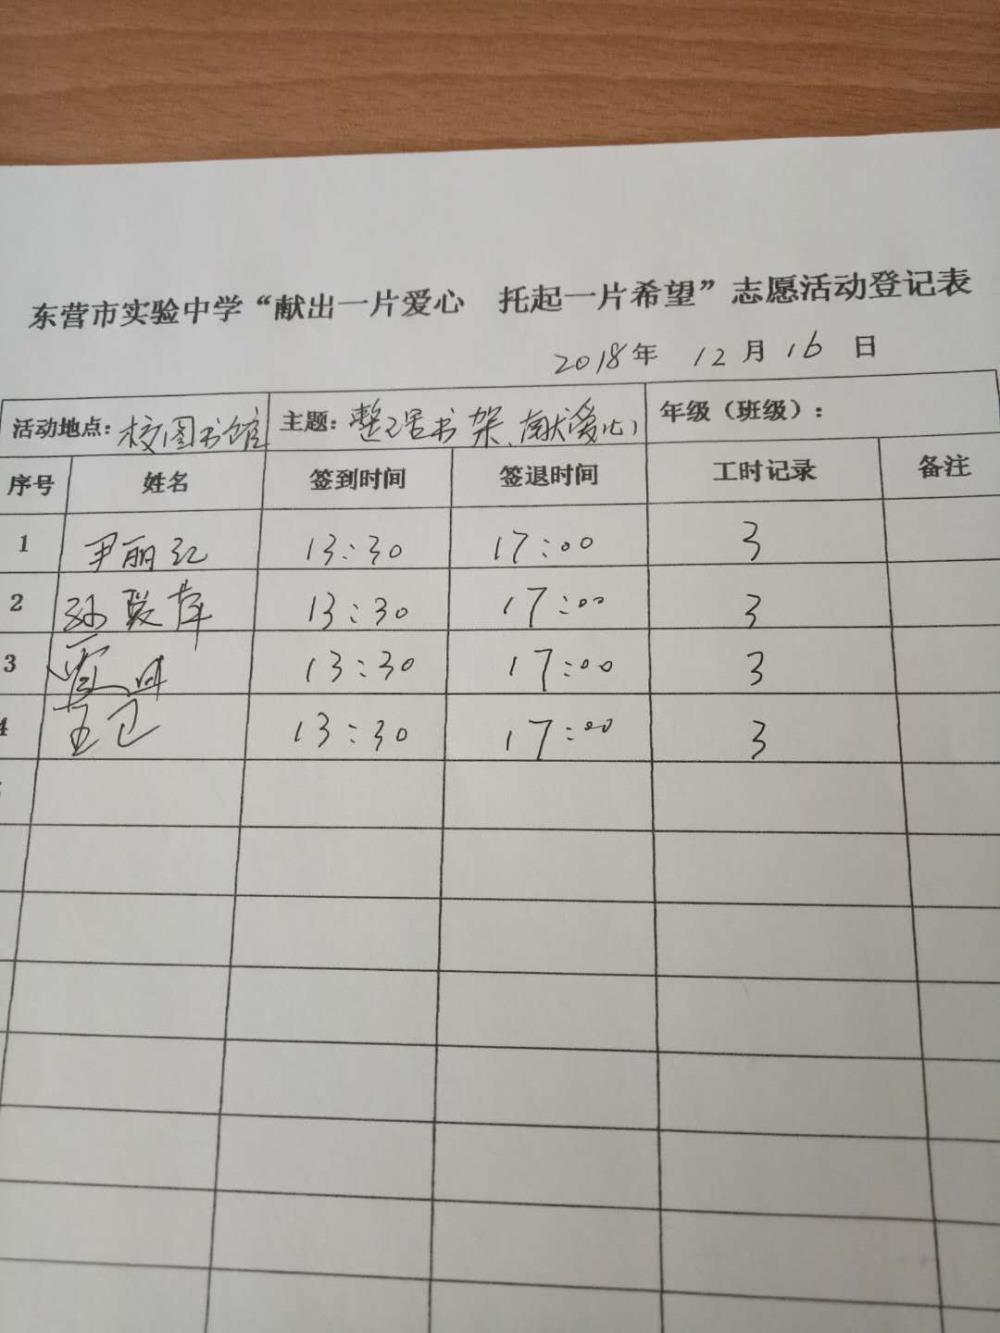 东营市实验中学“献出一片爱心 托起一片希望”志愿活动登记表
2018年 12月 16 日
活动地点：校图书馆 主题：整理书架、献爱心 年级（班级）：
序号 姓名 签到时间 签退时间 工时记录 备注
1 尹丽红 13:30 17:00 3
2 孙 萍 13:30 17:00 3
3 13:30 17:00 3
4 13:30 17:00 3